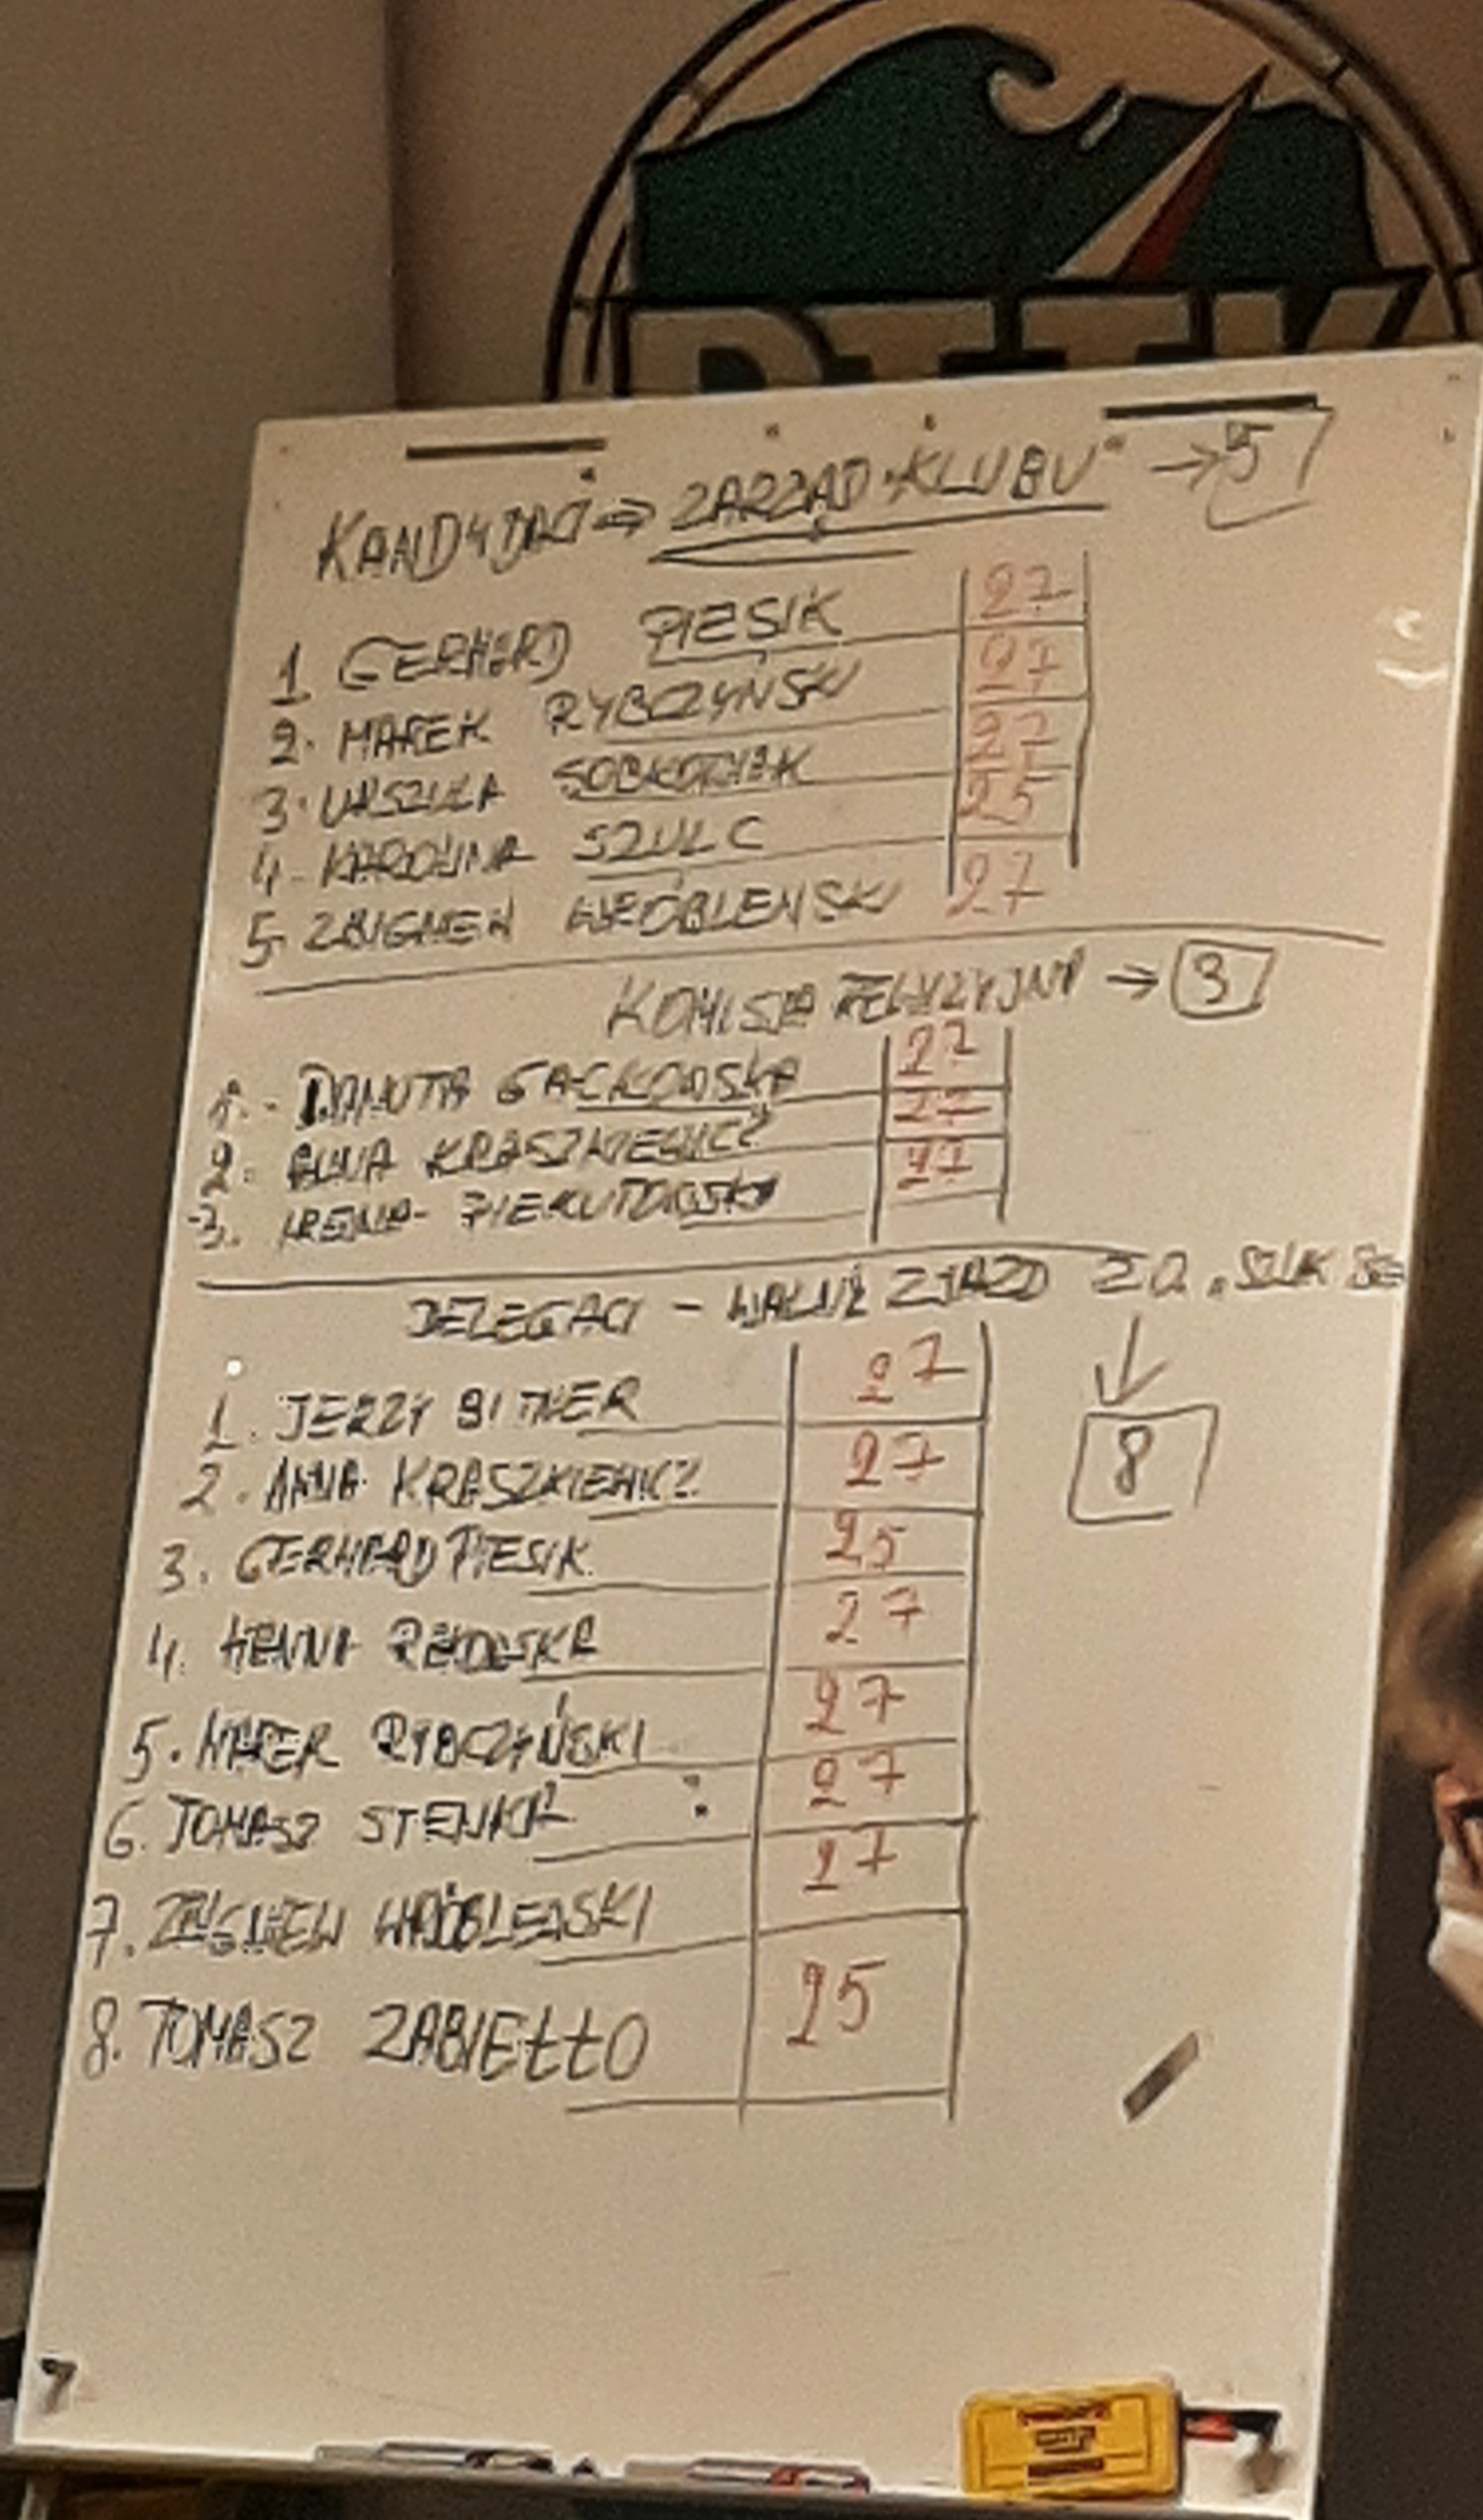 PTTK
KANDYDACI ⇒ ZARZĄD "KLUBU" → 5
1 GERHARD PIESIK 27
2. MAREK RYBCZYŃSKI 27
3. URSZULA 27
4. KAROLINA SZULC 25
5. ZBIGNIEW WRÓBLEWSKI 27
KOMISJA REWIZYJNA → 3
1. DANUTA GACKOWSKA 27
2. ANNA KRASZKIEWICZ 27
3. IRENA - PIEKUTOWSKA 27
DELEGACI - WALNY ZJAZD
1. JERZY BITNER 27
8
2. ANNA KRASZKIEWICZ 27
3. GERHARD PIESIK 25
4. 27
5. MAREK RYBCZYŃSKI 27
6. TOMASZ STENKA 27
7. ZBIGNIEW WRÓBLEWSKI 27
8. TOMASZ ZABIEŁŁO 25